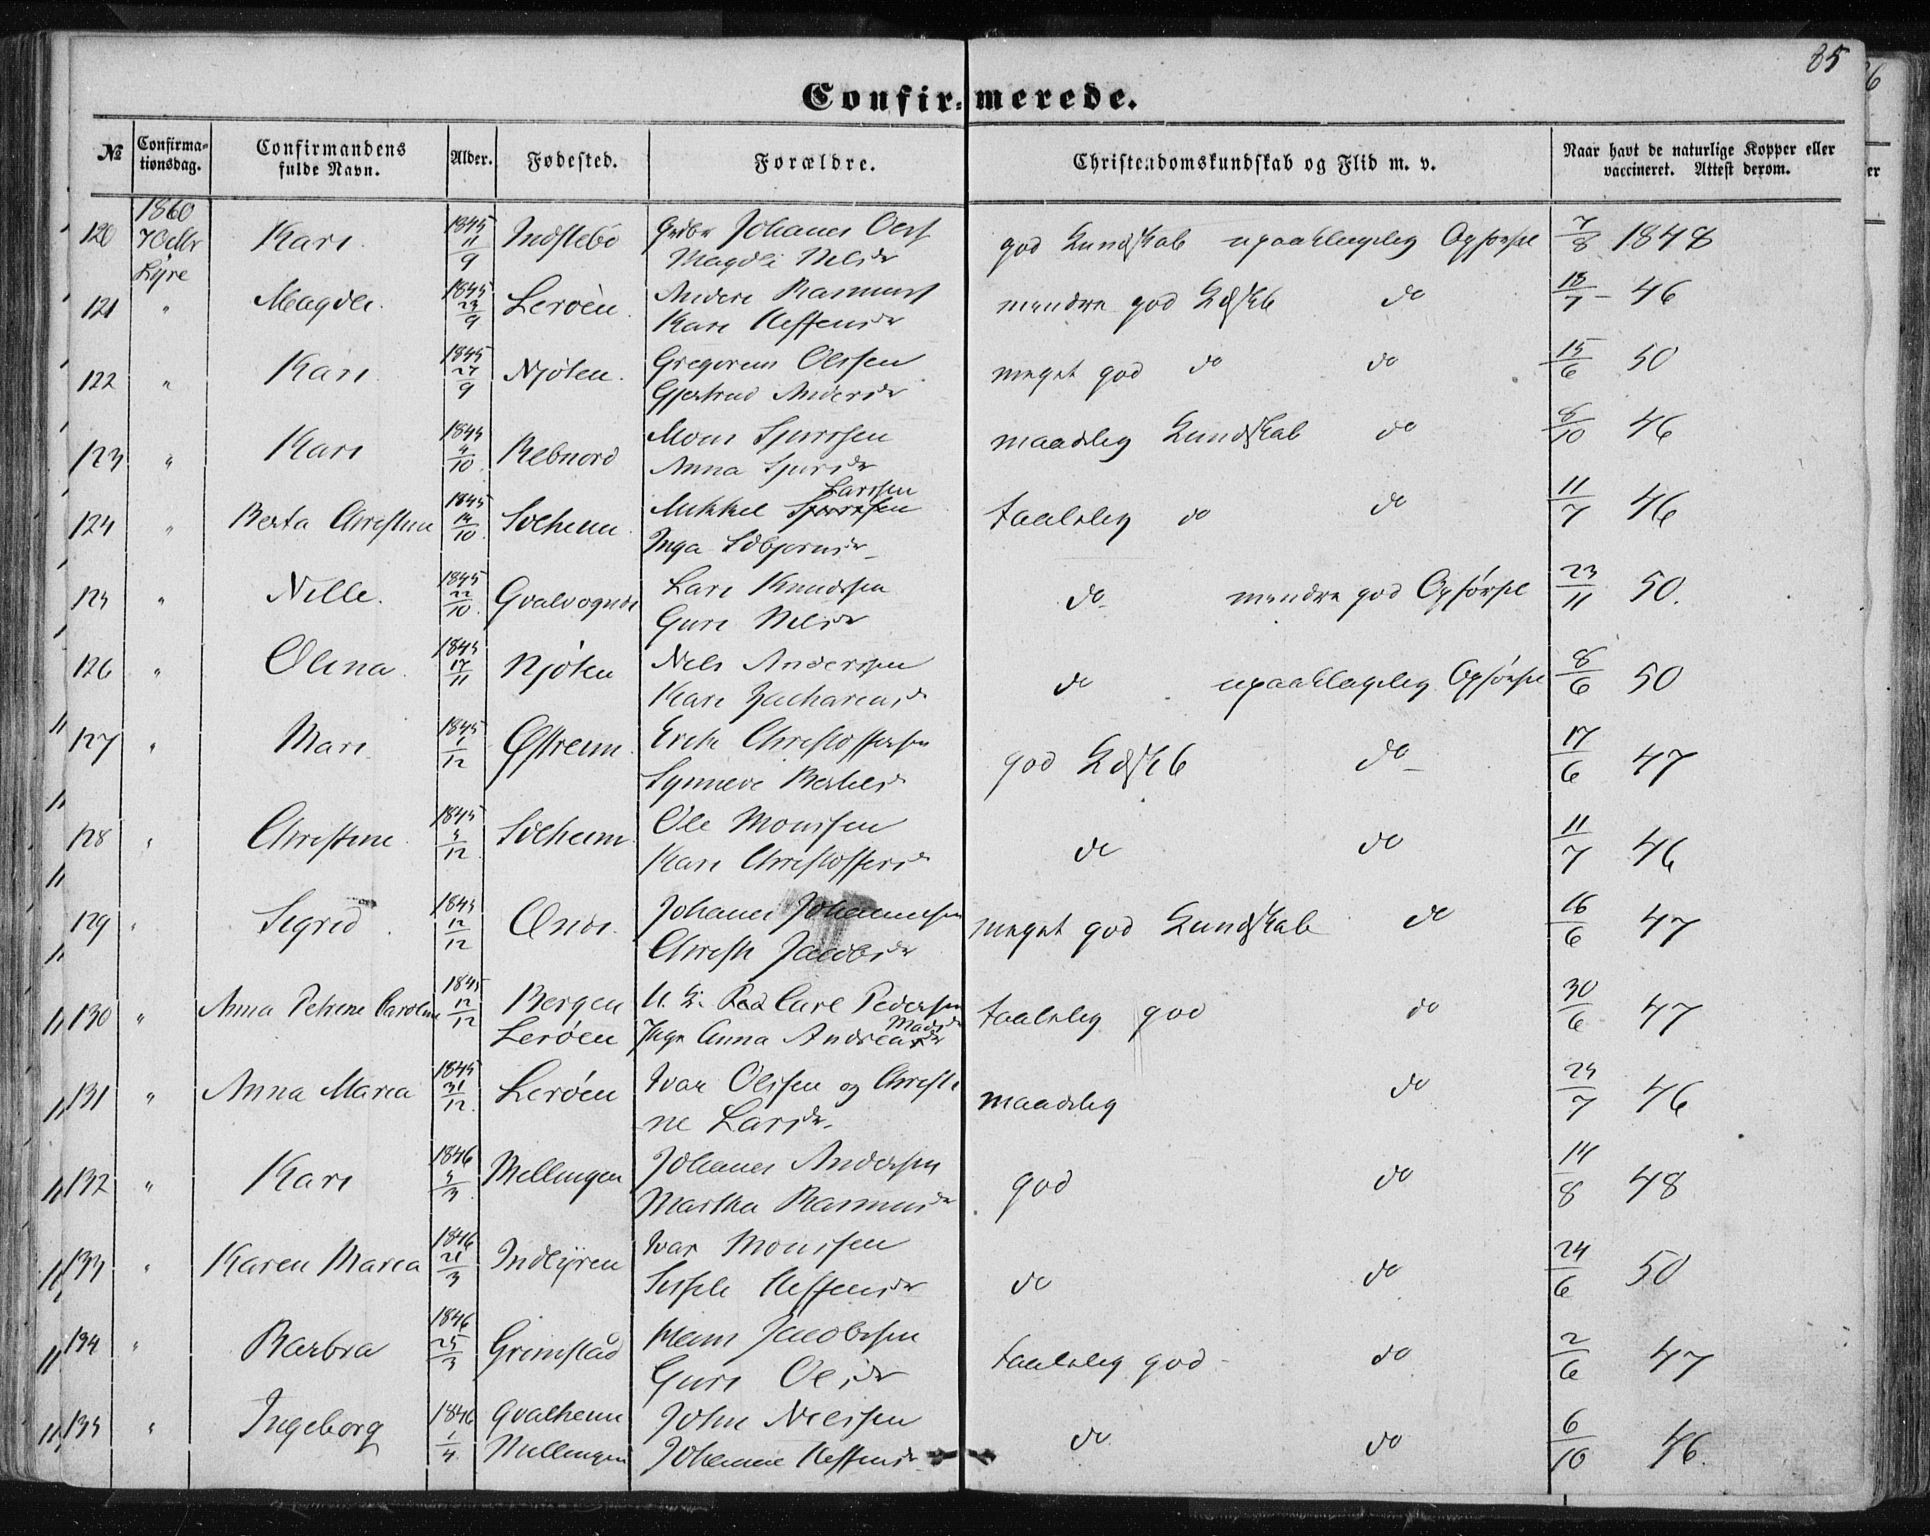 85
Confirmerede.
№ Confirmationsdag. Confirmandens fulde Navn. Alder. Fødested. Forældre. Christendomskundskab og Flid m. v. Naar havt de naturlige Kopper eller vaccineret. Attest derom.
1860
120 7 Octbr Kari 1845 11/9 Indstebø Johanes Oles
Lyre Magdli Nelsdr god Kundskab upaaklagelig Opførsel 7/8 1848
121 " Magdli 1845 23/9 Lerøen Anders Rasmuss
Kari Steffensdr mindre god Kdskb do 18/7 - 46
122 " Kari 1845 27/9 Njøten Gregorius Olssen
Gjertrud Andersdr meget god do do 15/6 50
123 " Kari 1845 4/10 Rebnord Mons Sjursen
Anna Sjursdr maadelig Kundskab do 8/10 46
Larssen
124 " Berta Christine 1845 14/10 Solheim Mikkel
Inga taalelig do do 11/7 46
125 " Nille 1845 22/10 Gvalvognes Lars Knudssen
Guri Nelsdr do mindre god Opførsel 23/11 50.
126 " Olina 1845 17/11 Njøten Nils Anderssen
Kari Zachariasd do upaaklagelig Opførsel 8/6 50
127 " Mari 1845 1/12 Østreim Erik Christoffersen
Synneve god Kdskb do 17/6 47
128 " Christine 1845 4/12 Solheim Ole Monssen
Kari Christoffersd do do 11/7 46
129 " Sigrid 1845 12/12 Johanes Johannesen
Christi Jacobsdr meget god Kundskab do 16/6 47
130 " Anna Petrine Caroline 1845 12/12 Bergen Carl Pedersen
Lerøen Anna Andrea Madsdr taalelig god do 30/6 47
131 " Anna Maria 1845 31/12 Lerøen Ivar Olssen og Christi
ne Larsdr. maadelig do 24/7 46
132 " Kari 1846 4/3 Mellingen Johanes Andersen
Martha Rasmusdr god do 14/8 48
133 " Karen Maria 1846 21/3 Indlyren Ivar Monssen
Sissele Steffensdr do do 24/6 50
134 " Barbra 1846 25/3 Grimstad Hans Jacobsen
Guri Olsdr taalelig god do 2/6 47
135 " Ingeborg 1846 1/4 Gvalheim John Nilssen
Mellingen Johanne Steffensdr do do 6/10 46.